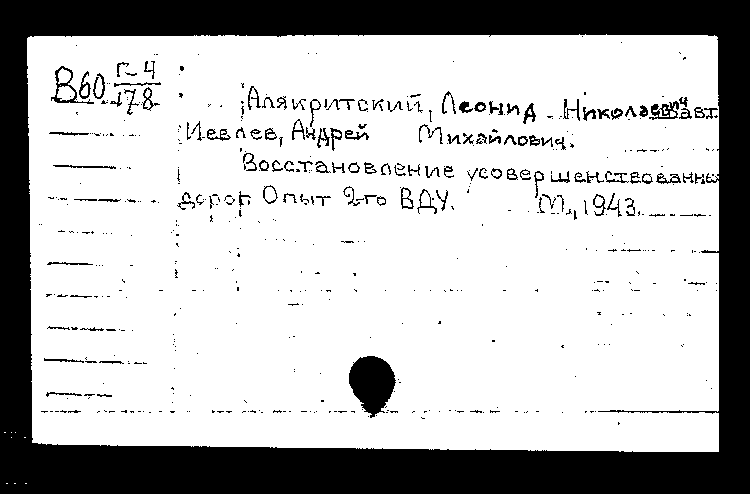 В60 Г-4
178
Алякритский, Леонид Николаевич авт.
Иевлев, Андрей Михайлович.
Восстановление усовершенствованных
дорог. Опыт 2-го ВДУ. М., 1943.